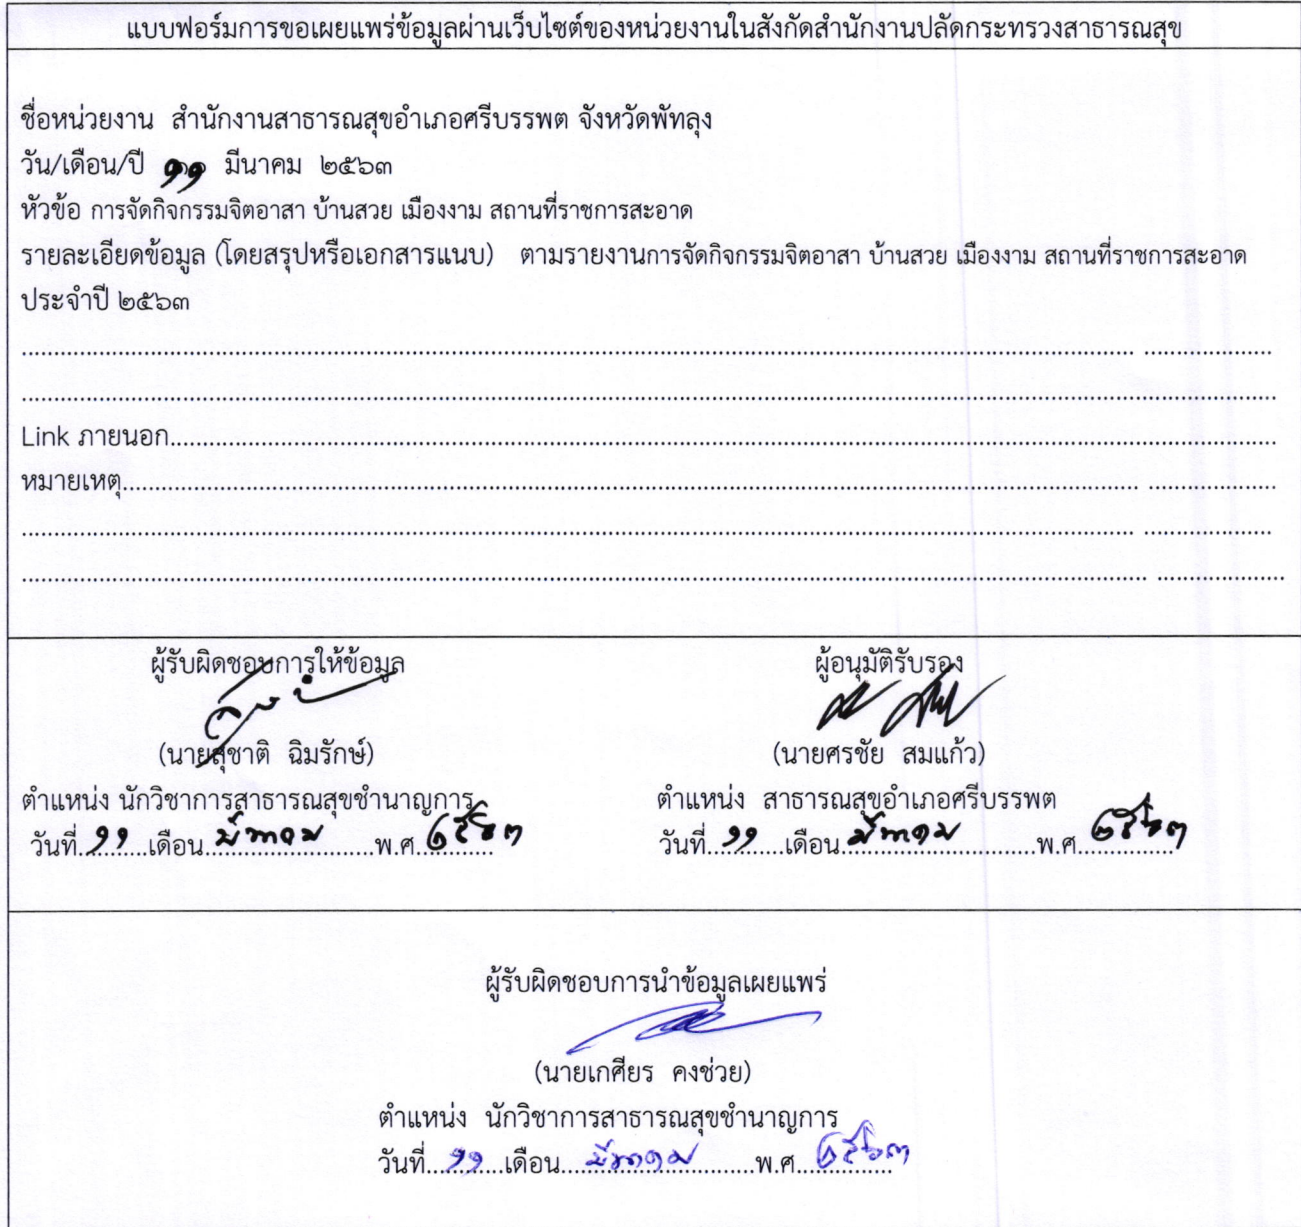 แบบฟอร์มการขอเผยแพร่ข้อมูลผ่านเว็บไซต์ของหน่วยงานในสังกัดสำนักงานปลัดกระทรวงสาธารณสุข
ชื่อหน่วยงาน สำนักงานสาธารณสุขอำเภอศรีบรรพต จังหวัดพัทลุง
วัน/เดือน/ปี ๑๑ มีนาคม ๒๕๖๓
หัวข้อ การจัดกิจกรรมจิตอาสา บ้านสวย เมืองงาม สถานที่ราชการสะอาด
รายละเอียดข้อมูล (โดยสรุปหรือเอกสารแนบ) ตามรายงานการจัดกิจกรรมจิตอาสา บ้านสวย เมืองงาม สถานที่ราชการสะอาด
ประจำปี ๒๕๖๓
Link ภายนอก
หมายเหตุ
ผู้รับผิดชอบการให้ข้อมูล
(นายสุชาติ ฉิมรักษ์)
ตำแหน่ง นักวิชาการสาธารณสุขชำนาญการ
วันที่ ๑๑ เดือน มีนาคม พ.ศ. ๒๕๖๓
ผู้อนุมัติรับรอง
(นายศรชัย สมแก้ว)
ตำแหน่ง สาธารณสุขอำเภอศรีบรรพต
วันที่ ๑๑ เดือน มีนาคม พ.ศ. ๒๕๖๓
ผู้รับผิดชอบการนำข้อมูลเผยแพร่
(นายเกศียร คงช่วย)
ตำแหน่ง นักวิชาการสาธารณสุขชำนาญการ
วันที่ ๑๑ เดือน มีนาคม พ.ศ. ๒๕๖๓